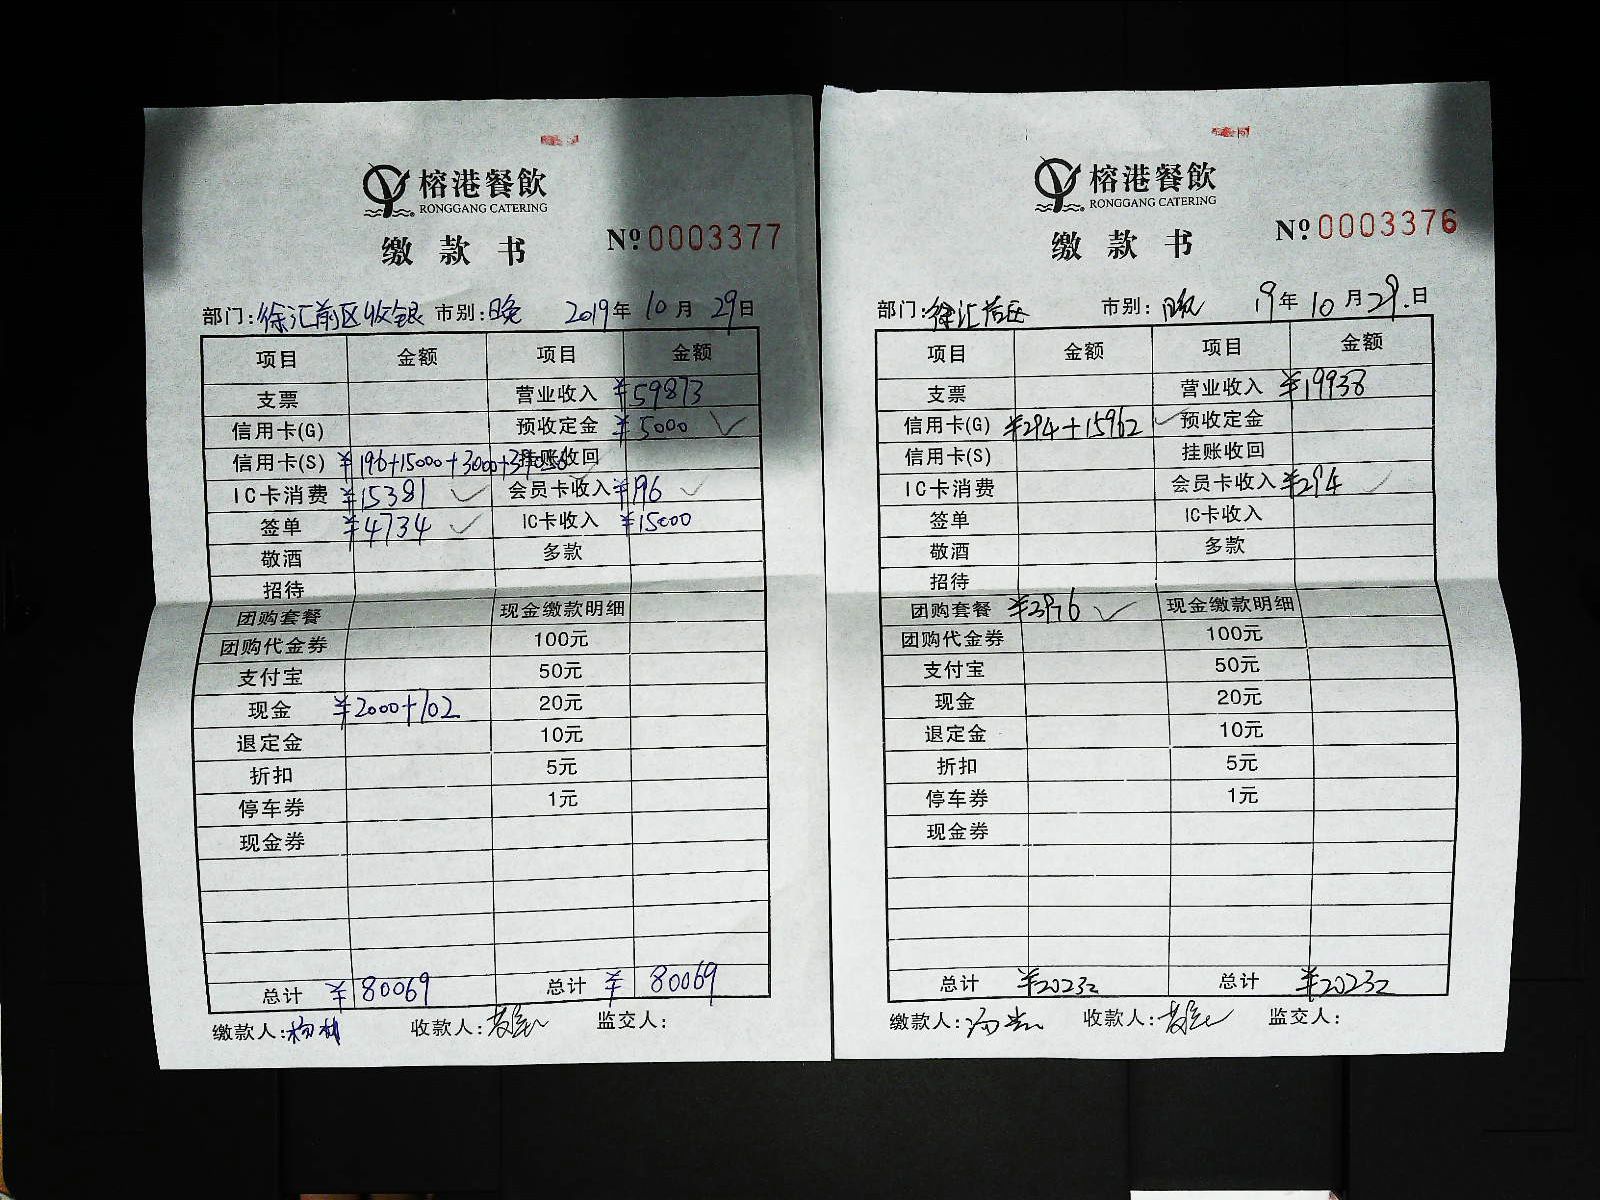 榕港餐飲
RONGGANG CATERING
缴款书 Nº 0003377
部门:徐汇前区收银 市别:晚 2019年10月29日
项目 金额 项目 金额
支票 营业收入 ¥59873
信用卡(G) 预收定金 ¥5000
信用卡(S) ¥196+15000+3000+39656 挂账收回
IC卡消费 ¥15381 会员卡收入 ¥196
签单 ¥4734 IC卡收入 ¥15000
敬酒 多款
招待
团购套餐 现金缴款明细
团购代金券 100元
支付宝 50元
现金 ¥2000+102 20元
退定金 10元
折扣 5元
停车券 1元
现金券
总计 ¥80069 总计 ¥80069
缴款人: 收款人: 监交人:
榕港餐飲
RONGGANG CATERING
缴款书 Nº 0003376
部门:徐汇 市别:晚 19年10月29.日
项目 金额 项目 金额
支票 营业收入 ¥19938
信用卡(G) ¥294+15962 预收定金
信用卡(S) 挂账收回
IC卡消费 会员卡收入 ¥294
签单 IC卡收入
敬酒 多款
招待
团购套餐 ¥3976 现金缴款明细
团购代金券 100元
支付宝 50元
现金 20元
退定金 10元
折扣 5元
停车券 1元
现金券
总计 ¥20232 总计 ¥20232
缴款人: 收款人: 监交人: